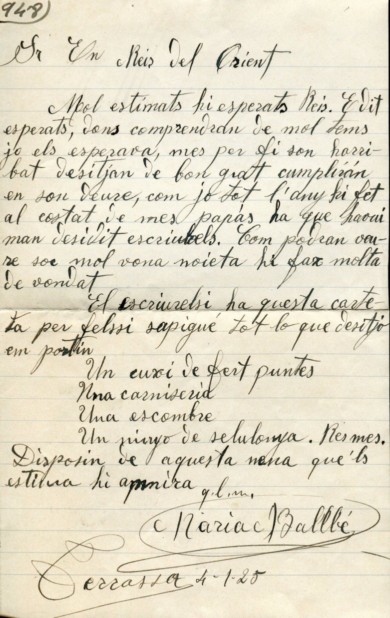 948)
Sr En Reis del Orient
Mol estimats hi esperats Reis. E dit
esperats, dons comprendran de mol tems
jo els esperava, mes per fi son harri-
bat desitjan de bon grat cumplirán
en son deure, com jo tot l'any hi fet
al costat de mes papas ha que havui
man desidit escriurels. Com podran veu-
re soc mol vona noieta hi fax molta
de vondat
El escriurelsi ha questa carte-
ta per felssi sapigué tot lo que desitjo
em portin
Un cuxi de fert puntes
Una carniseria
Una escombre
Un ninyo de selulonya. Res mes.
Disposin de aquesta nena que'ls
estima hi apnira
q.l.m.
Maria Ballbé
Terrassa 4-1-25